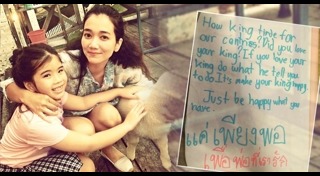 How king time for
our contries? Did you love
your king? If you love your
king do what he tell you
to do. It's make your king happy.
Just be happy what you
have.
แค่ เพียงพอ
เพื่อ พ่อที่เรารัก